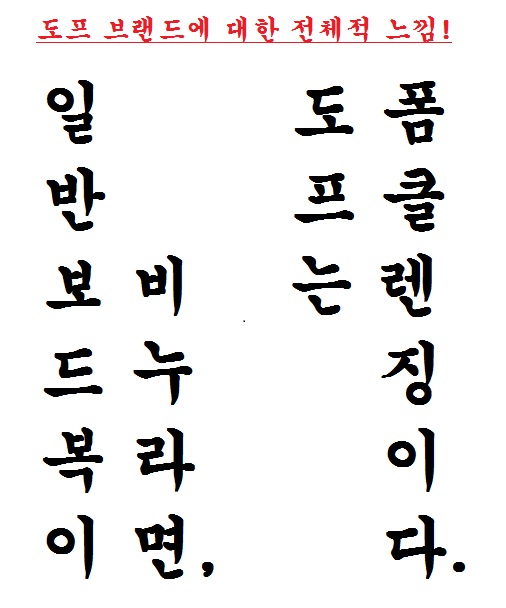 도프 브랜드에 대한 전체적 느낌!
일반보드복이
비누라면,
도프는
폼클렌징이다.